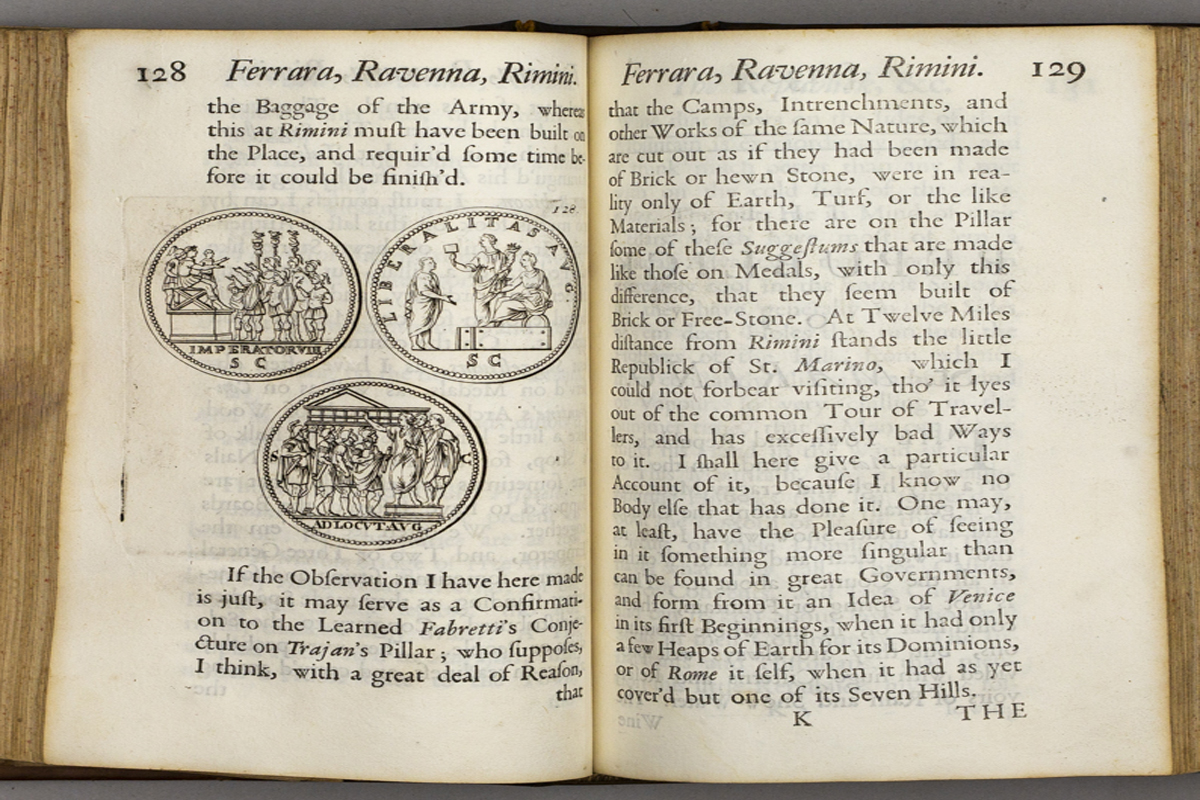 128 Ferrara, Ravenna, Rimini.
the Baggage of the Army, whereas
this at Rimini muſt have been built on
the Place, and requir'd ſome time be-
fore it could be finiſh'd.
128.
IMPERATOR VIII
S C
LIBERALITAS AVG.
S C
S C
ADLOCVT AVG
If the Obſervation I have here made
is juſt, it may ſerve as a Confirmati-
on to the Learned Fabretti's Conje-
cture on Trajan's Pillar; who ſuppoſes,
I think, with a great deal of Reaſon,
that
Ferrara, Ravenna, Rimini. 129
that the Camps, Intrenchments, and
other Works of the ſame Nature, which
are cut out as if they had been made
of Brick or hewn Stone, were in rea-
lity only of Earth, Turf, or the like
Materials; for there are on the Pillar
ſome of theſe Suggeſtums that are made
like thoſe on Medals, with only this
difference, that they ſeem built of
Brick or Free-Stone. At Twelve Miles
diſtance from Rimini ſtands the little
Republick of St. Marino, which I
could not forbear viſiting, tho' it lyes
out of the common Tour of Travel-
lers, and has exceſſively bad Ways
to it. I ſhall here give a particular
Account of it, becauſe I know no
Body elſe that has done it. One may,
at leaſt, have the Pleaſure of ſeeing
in it ſomething more ſingular than
can be found in great Governments,
and form from it an Idea of Venice
in its firſt Beginnings, when it had only
a few Heaps of Earth for its Dominions,
or of Rome it ſelf, when it had as yet
cover'd but one of its Seven Hills.
K THE